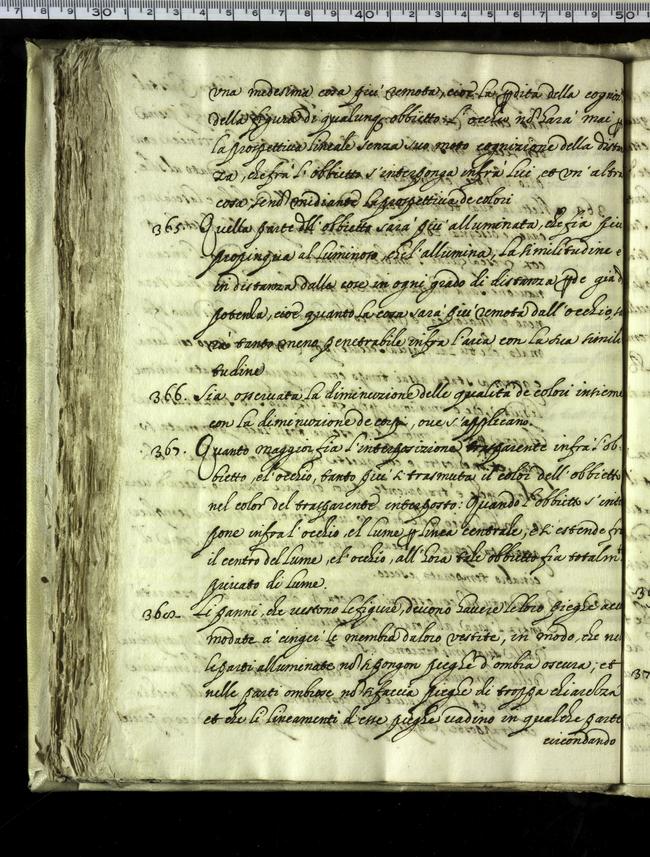 una medesima cosa piu' remota, cioè la p̱dita della cogniz
della figura di qualunq, obbietto. L'occhio nõ harà mai p̱
la prospettiva lineale senza suo moto cognizione della dista
za, che frà l'obbietto s'interponga infrà lui, et un' altra
cosa, senõ mediante la prospettiva de colori
365. Quella parte dell' obbietto sarà piu' alluminata, che fia piu
propinqua al luminoso, che l'allumina, La similitudine e
in distanza dalle cose in ogni grado di distanza p̱de gradi
potenza, cioè quanto la cosa sarà piu' remota dall' occhio, sa
rà tanto meno penetrabile infra l'aria con la sua simili
tudine
366. Sia osservata la diminuzione delle qualità de colori insieme
con la diminuzione de corpi, ove s'applicano.
367. Quanto maggior fia l'interposizione trasparente infra l'ob
bietto, e l'occhio, tanto piu' si trasmuta il color dell' obbietto
nel color del trasparente interposto: Quando l'obbietto s'inte
pone infra l'occhio, e'l lume p̱ linea centrale, che si estende fr
il centro del lume, e l'occhio, all'hora tale obbietto fia totalm.
privato di lume.
368 Li panni, che vestono le figure, devono havere le loro pieghe acc
modate a' cinger' le membra da loro vestite, in modo, che ne
le parti alluminate nõ si pongon pieghe d'ombra oscura; et
nelle parti ombrose nõ si faccia pieghe di troppa chiarezza
et che li lineamenti d'esse pieghe vadino in qualche parte
circondando